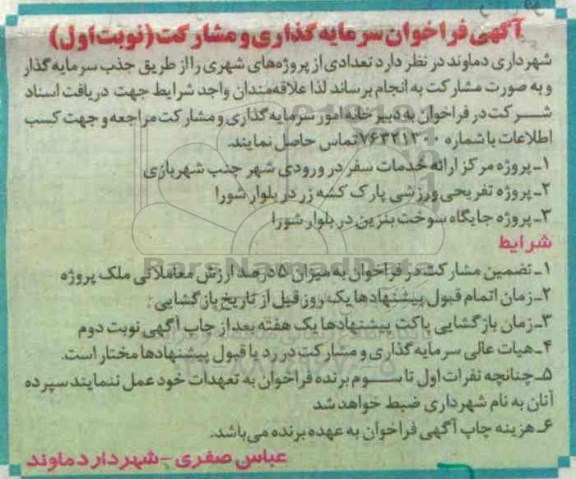 آگهی فراخوان سرمایه گذاری و مشارکت (نوبت اول)
شهرداری دماوند در نظر دارد تعدادی از پروژه‌های شهری را از طریق جذب سرمایه گذار
و به صورت مشارکت به انجام برساند لذا علاقه‌مندان واجد شرایط جهت دریافت اسناد
شرکت در فراخوان به دبیرخانه امور سرمایه گذاری و مشارکت مراجعه و جهت کسب
اطلاعات با شماره ۷۶۳۲۱۳۰۰ تماس حاصل نمایند.
۱ـ پروژه مرکز ارائه خدمات سفر در ورودی شهر جنب شهربازی
۲ـ پروژه تفریحی ورزشی پارک کشه زر در بلوار شورا
۳ـ پروژه جایگاه سوخت بنزین در بلوار شورا
شرایط
۱ـ تضمین مشارکت در فراخوان به میزان ۵ درصد ارزش معاملاتی ملک پروژه
۲ـ زمان اتمام قبول پیشنهادها یک روز قبل از تاریخ بازگشایی:
۳ـ زمان بازگشایی پاکت پیشنهادها یک هفته بعد از چاپ آگهی نوبت دوم
۴ـ هیات عالی سرمایه گذاری و مشارکت در رد یا قبول پیشنهادها مختار است.
۵ـ چنانچه نفرات اول تا سوم برنده فراخوان به تعهدات خود عمل ننمایند سپرده
آنان به نام شهرداری ضبط خواهد شد
۶ـ هزینه چاپ آگهی فراخوان به عهده برنده می‌باشد.
عباس صفری - شهردار دماوند
ParsNamadData